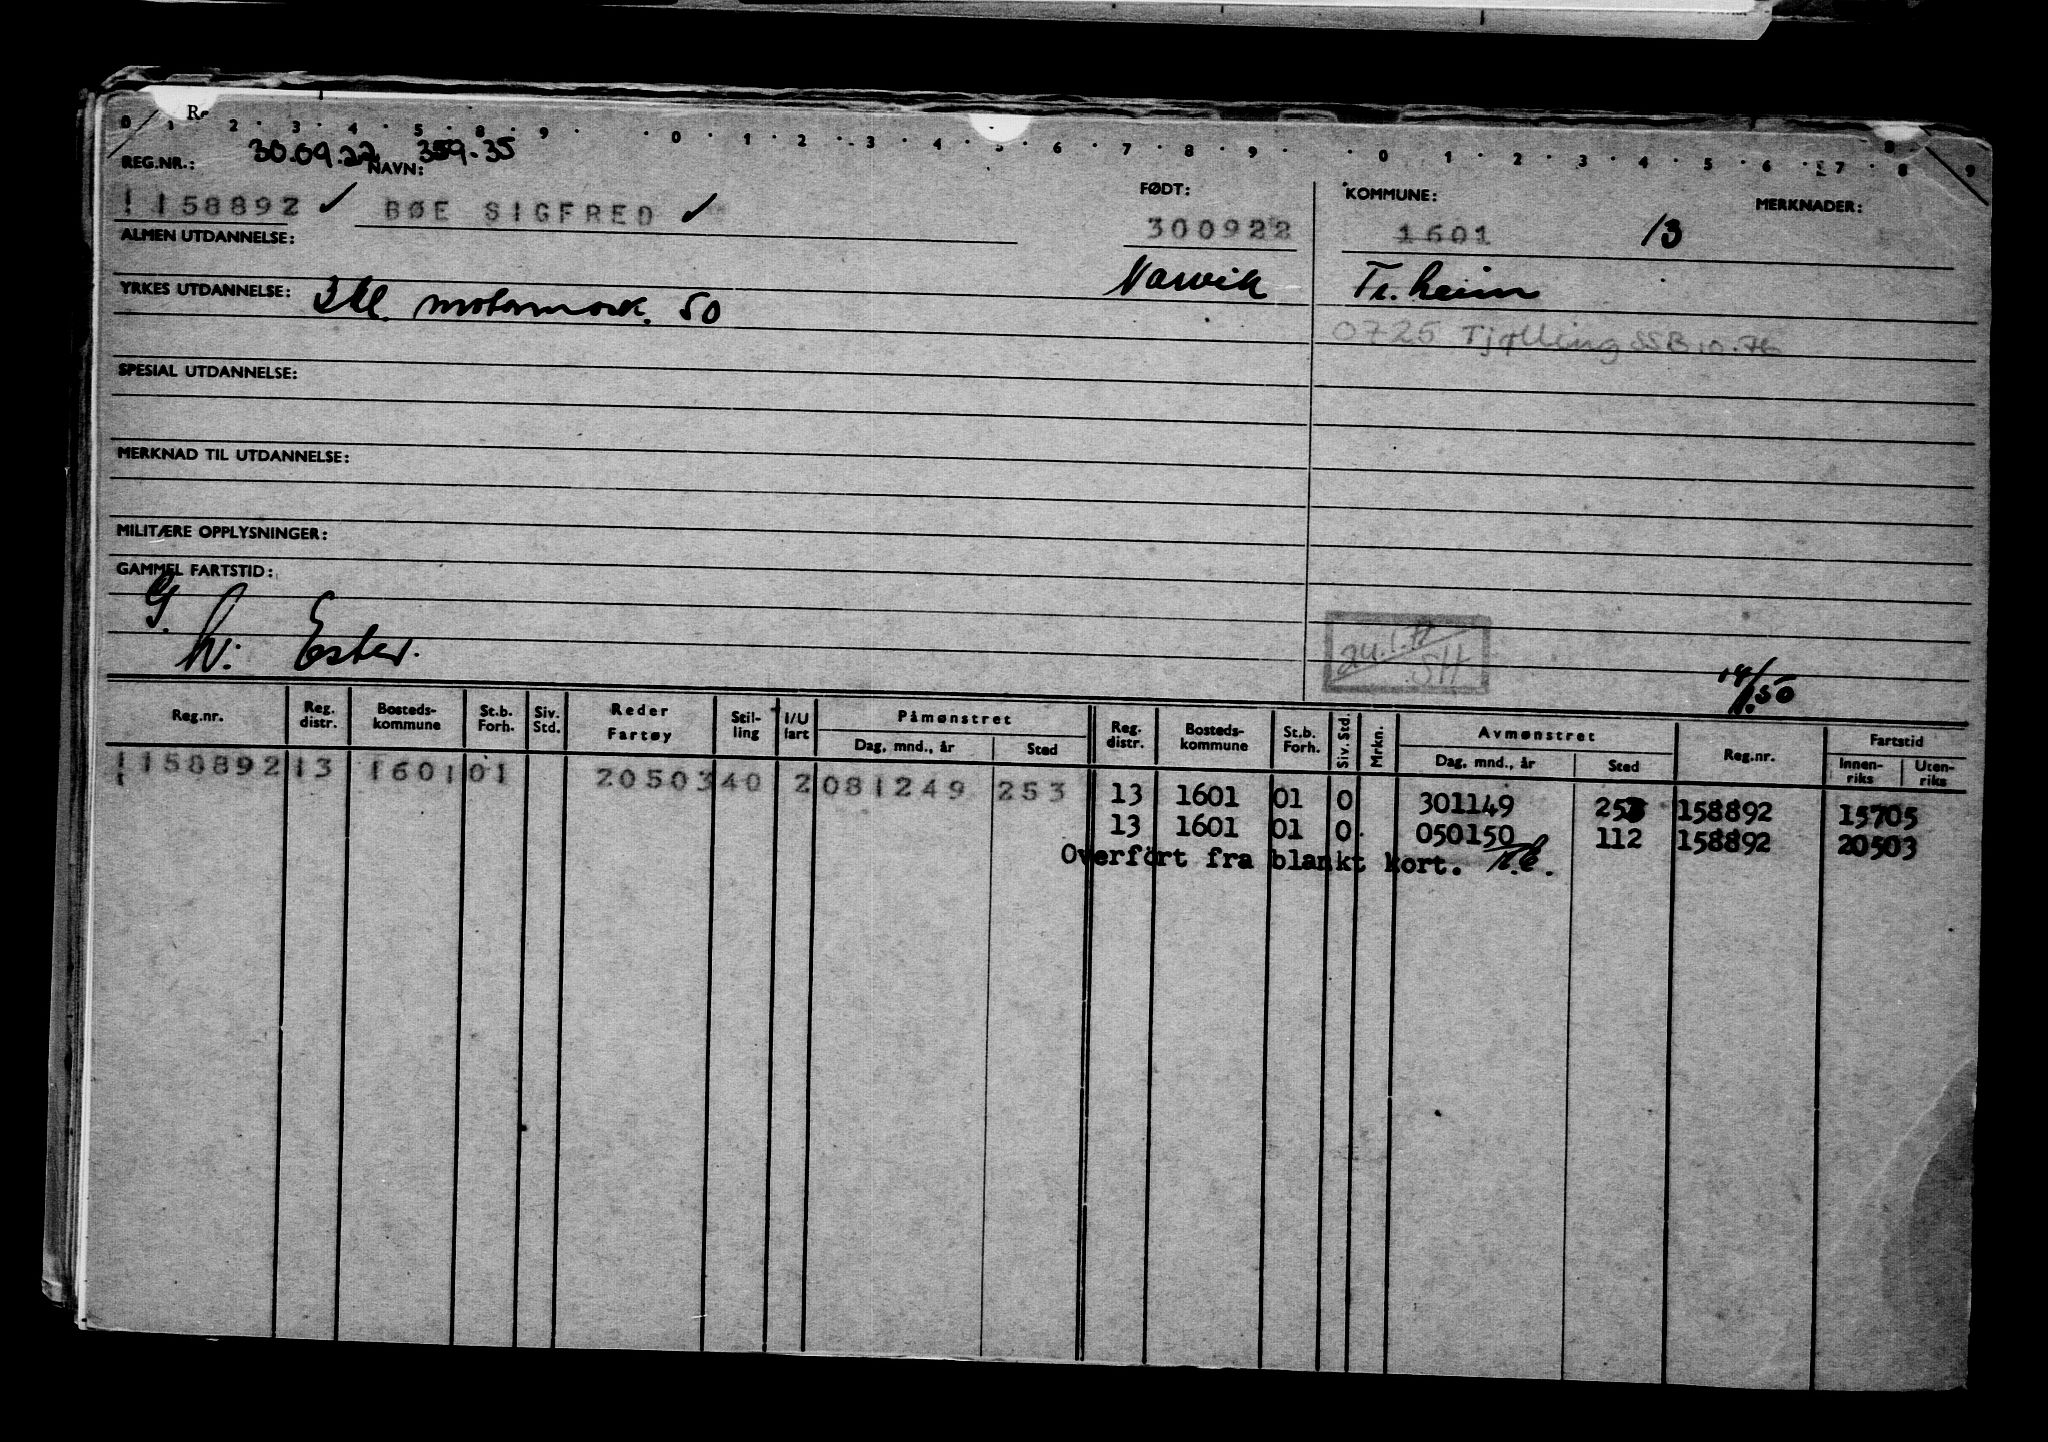 Re
0 1 2 · 3 · 4 · 5 · 8 · 9 · · 0 · 1 · 2 · 3 · 4 · 5 · 6 · 7 · 8 · 9 · · 0 · 1 · 2 · 3 · 4 · 5 · 6 · 7 · 8 9
REG.NR.: 30.09.22 NAVN: 359.35 FØDT: KOMMUNE: MERKNADER:
158892 ✓ BØE SIGFRED ✓ 300922 1601 13
ALMEN UTDANNELSE: Narvik Tr.heim
YRKES UTDANNELSE: 3 kl. motormask. 50
0725 Tjølling SSB 10.76
SPESIAL UTDANNELSE:
MERKNAD TIL UTDANNELSE:
MILITÆRE OPPLYSNINGER:
GAMMEL FARTSTID:
G.
h: Ester.
24.1.72
SH
14/1.50
Reg.nr. Reg. distr. Bosteds-kommune St.b. Forh. Siv. Std. Reder Fartøy Stil-ling I/U fart Påmønstret Dag, mnd., år Sted Reg. distr. Bosteds-kommune St.b. Forh. Siv. Std. Mrkn. Avmønstret Dag, mnd., år Sted Reg.nr. Fartstid Innen-riks Uten-riks
158892 13 1601 01 20503 40 2 081249 253 13 1601 01 0 301149 253 158892 15705
13 1601 01 0. 050150 112 158892 20503
Overført fra blankt kort.